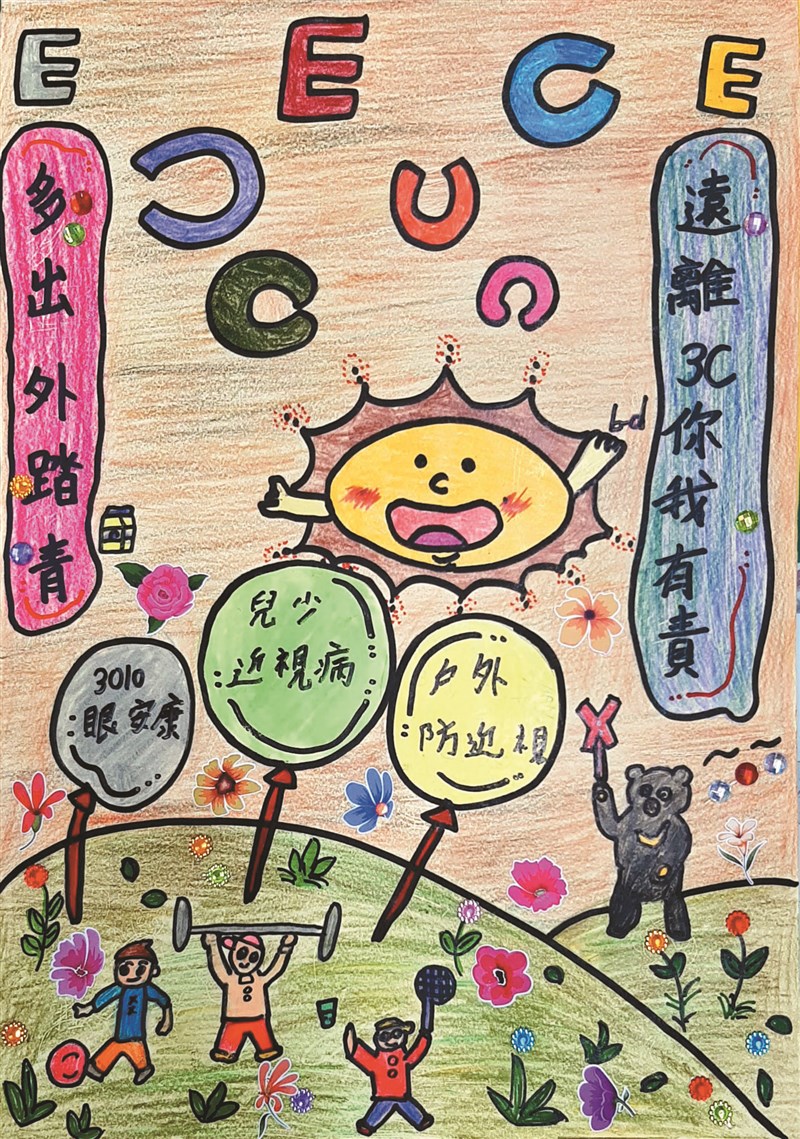 E E C E
多出外踏青
遠離3C你我有責
3010
眼安康
兒少
近視病
戶外
防近視